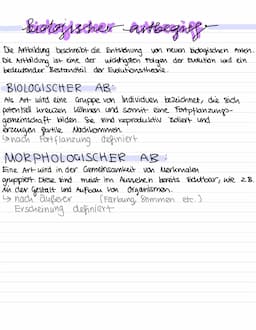 Biologischer Artbegriff
Die Artbildung beschreibt die Entstehung von neuen biologischen Arten.
Die Artbildung ist eine der wichtigsten Folgen der Evolution und ein
bedeutender Bestandteil der Evolutionstheorie.
BIOLOGISCHER AB:
Als Art wird eine Gruppe von Individuen bezeichnet, die sich
potentiell kreuzen können und somit eine Fortpflanzungs-
gemeinschaft bilden. Sie sind reproduktiv isoliert und
erzeugen fertile Nachkommen.
↳ nach Fortpflanzung definiert
MORPHOLOGISCHER AB:
Eine Art wird in der Gemeinsamkeit von Merkmalen
gruppiert. Diese sind meist im Aussehen bereits sichtbar, wie z.B.
An der Gestalt und Aufbau von Organismen.
↳ nach äußerer (Färbung, Stimmen etc.)
Erscheinung definiert